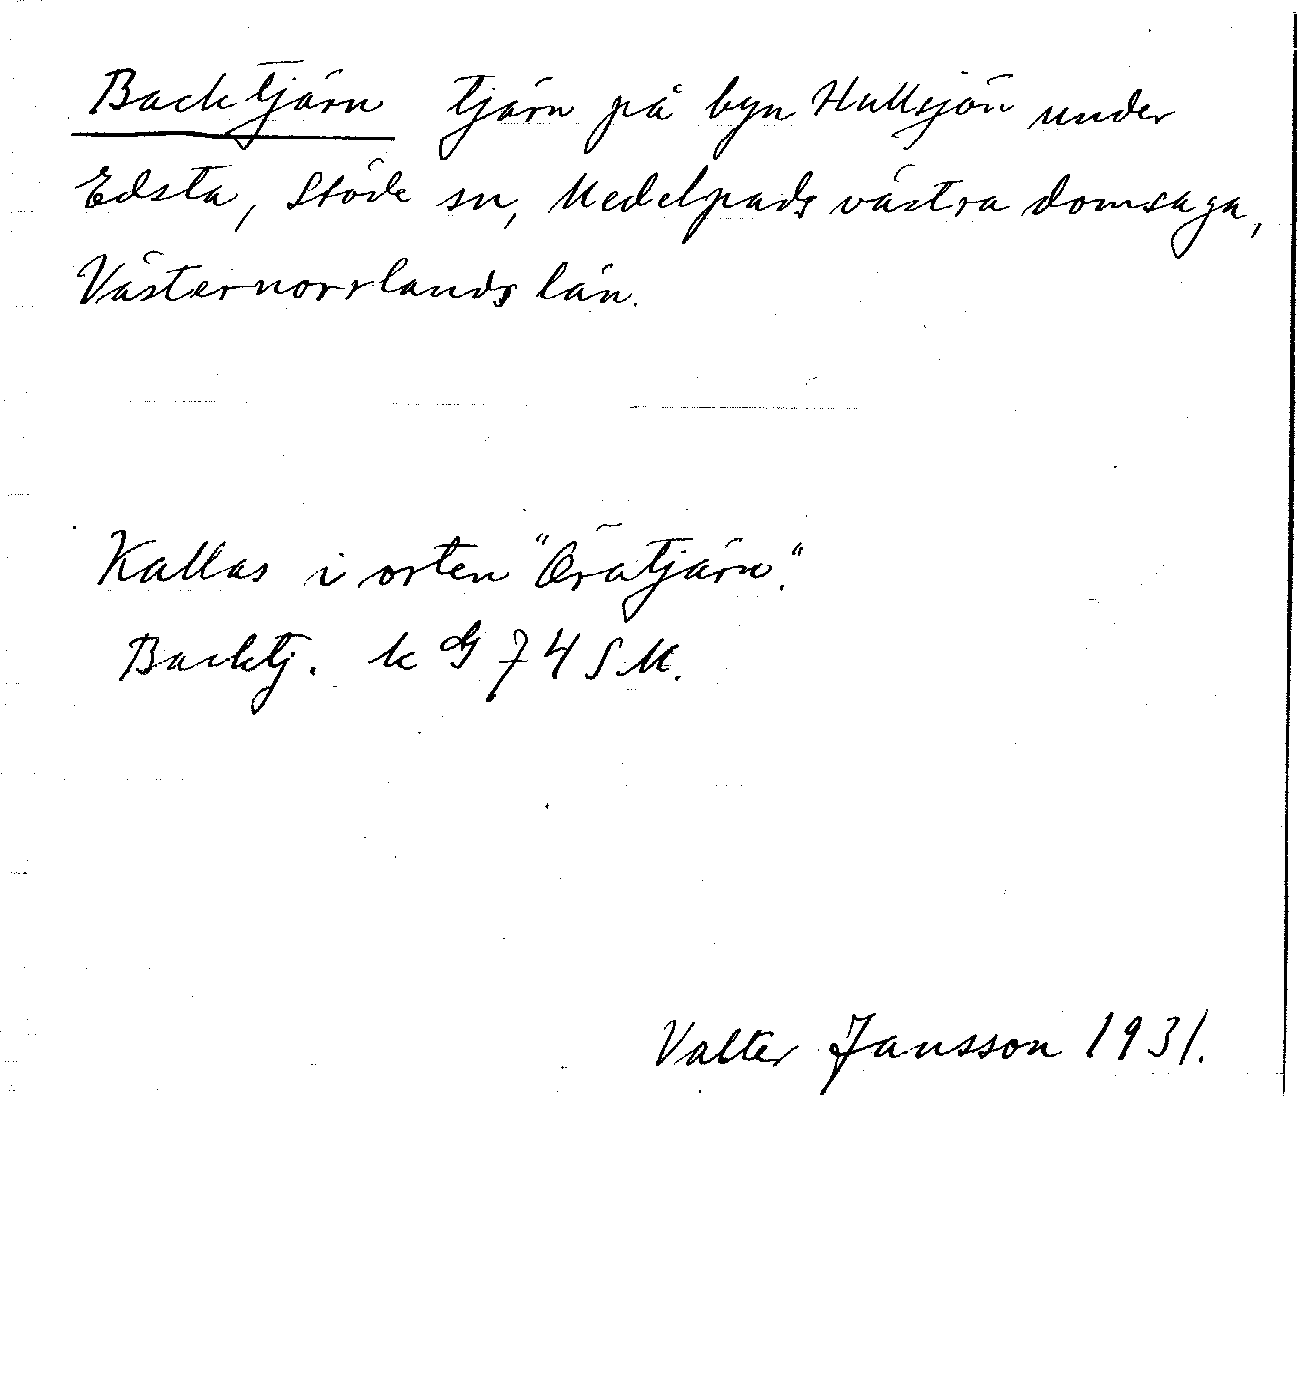 Backtjärn tjärn på byn Hullsjön under
Edsta, Stöde sn, Medelpads västra domsaga,
Västernorrlands län.
Kallas i orten "Öratjärn".
Backtj. k G 74 SM.
Valter Jansson 1931.